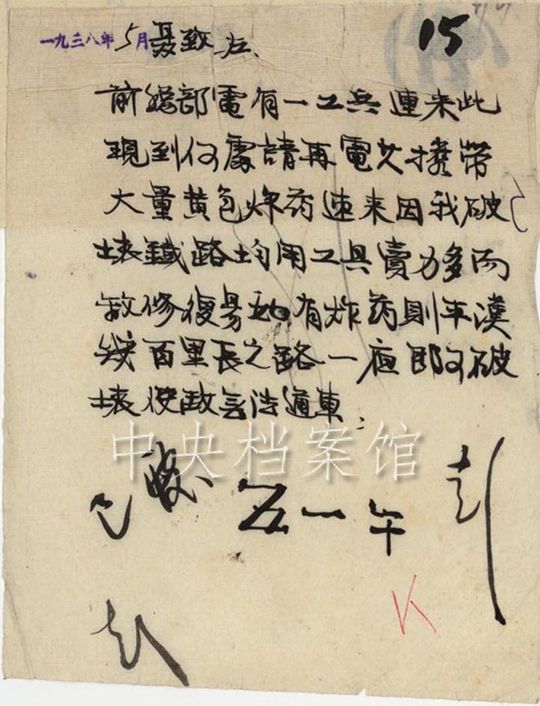 一九三八年5月聂致左、
15
前總部電有一工兵連来此
現到何處請再電文携带
大量黄色炸药速来因我破
壊鐵路均用工具賣力多而
敌修復易如有炸药則平漢
线百里長之路一夜即可破
壊使敌无法通車
中央档案馆
五一午
K